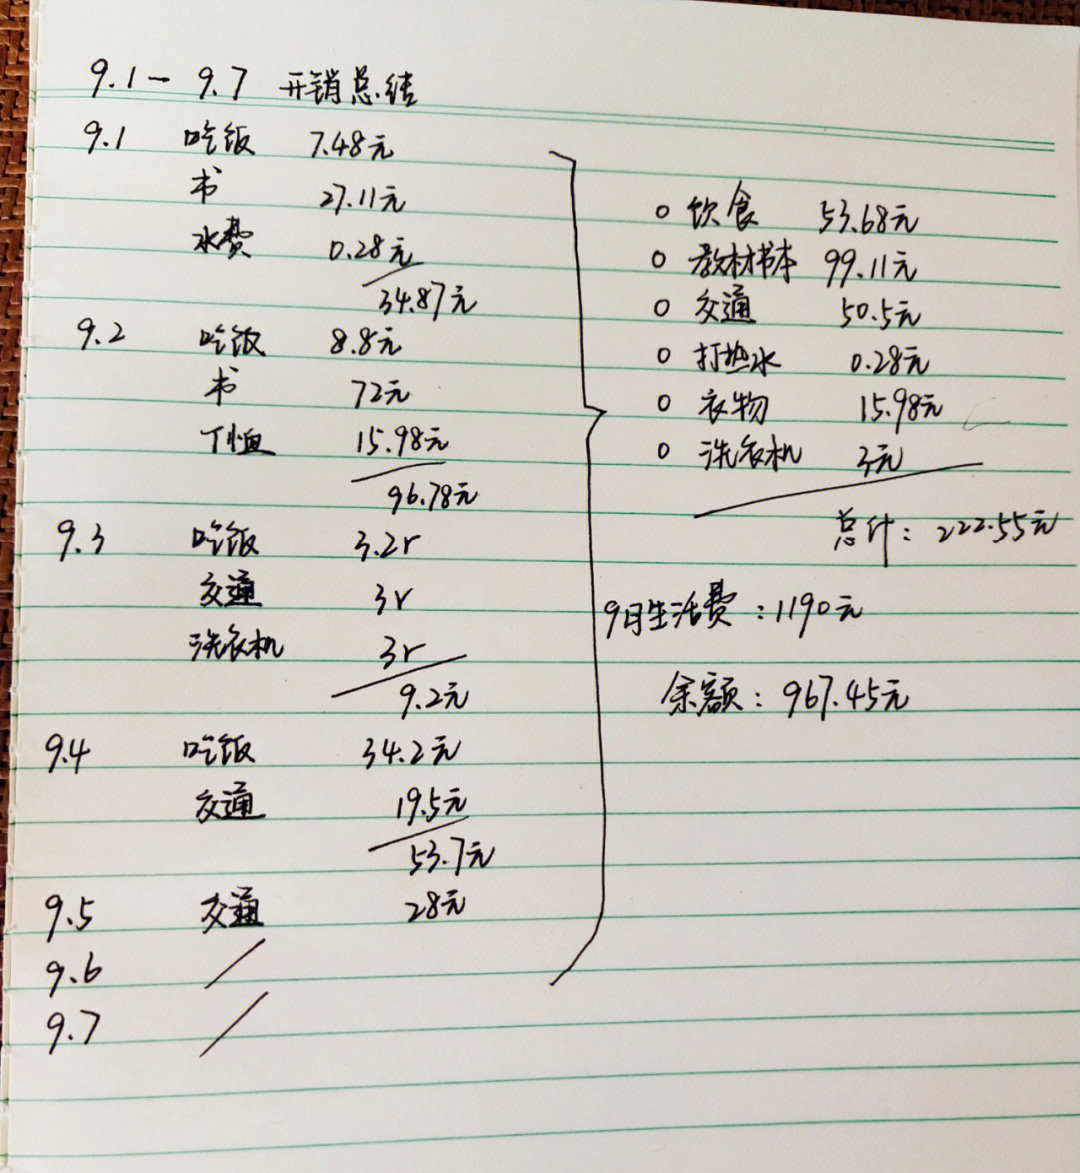 9.1－9.7 开销总结
9.1 吃饭 7.48元
书 27.11元
水费 0.28元
34.87元
9.2 吃饭 8.8元
书 72元
T恤 15.98元
96.78元
9.3 吃饭 3.2r
交通 3r
洗衣机 3r
9.2元
9.4 吃饭 34.2元
交通 19.5元
53.7元
9.5 交通 28元
9.6 /
9.7 /
o 饮食 53.68元
o 教材书本 99.11元
o 交通 50.5元
o 打热水 0.28元
o 衣物 15.98元
o 洗衣机 3元
总计：222.55元
9月生活费：1190元
余额：967.45元